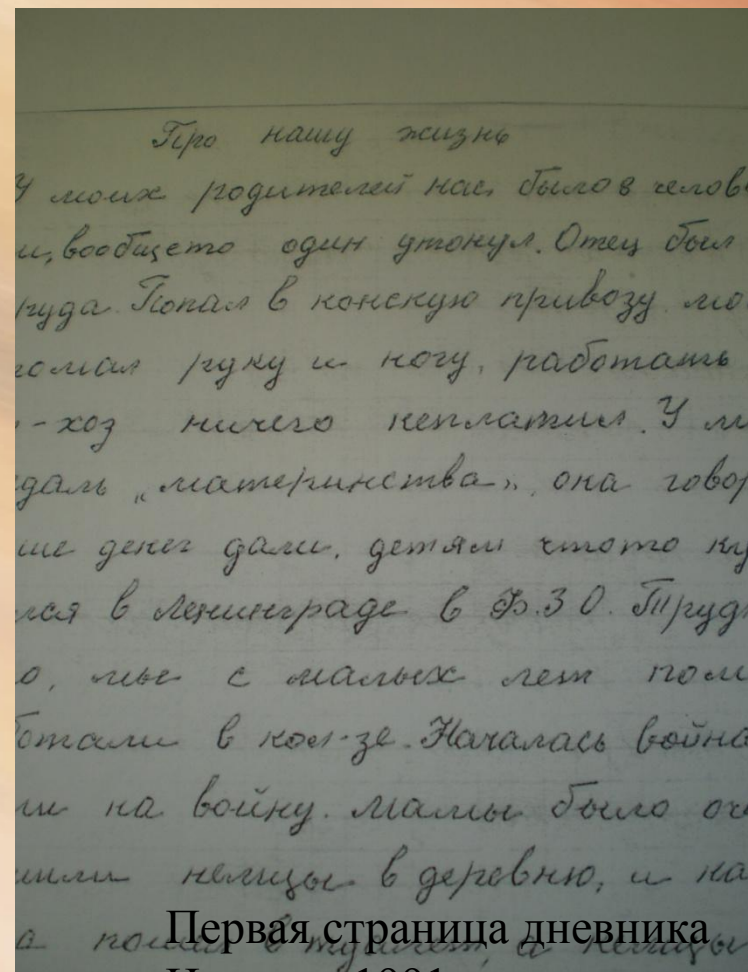 Про нашу жизнь
У моих родителей нас было 8 челов
и, вообщето один утонул. Отец был
руда. Попал в конскую привозу мо
ломал руку и ногу, работать
-хоз ничего неплатил. У м
даль „материнства", она говор
ше денег дали, детям чтото ку
лся в Ленинграде в Ф.З О. Труд
о, мы с малых лет пом
отали в кол-зе. Началась война
ли на войну. Мамы было оч
шли немцы в деревню, и на
а немцы
Первая страница дневника